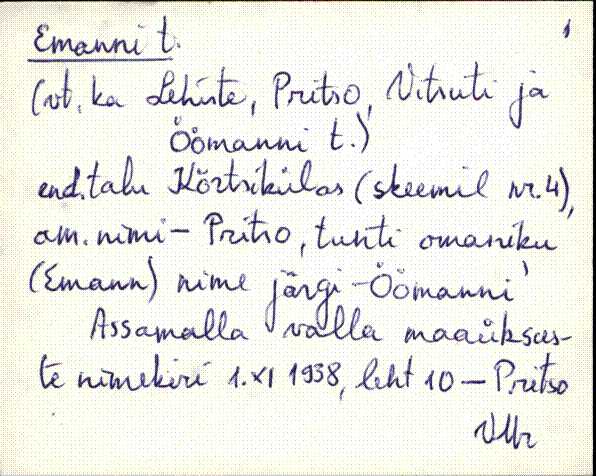 Emanni t. 1
(vt. ka Lehiste, Pritso, Vitsuti ja
Öömanni t.)
end. talu Kõrtsikülas (skeemil nr. 4),
am. nimi - Pritso, tunti omaniku
(Emann) nime järgi - Öömanni
Assamalla valla maaüksus-
te nimekiri 1. XI 1938, leht 10 - Pritso
VMr